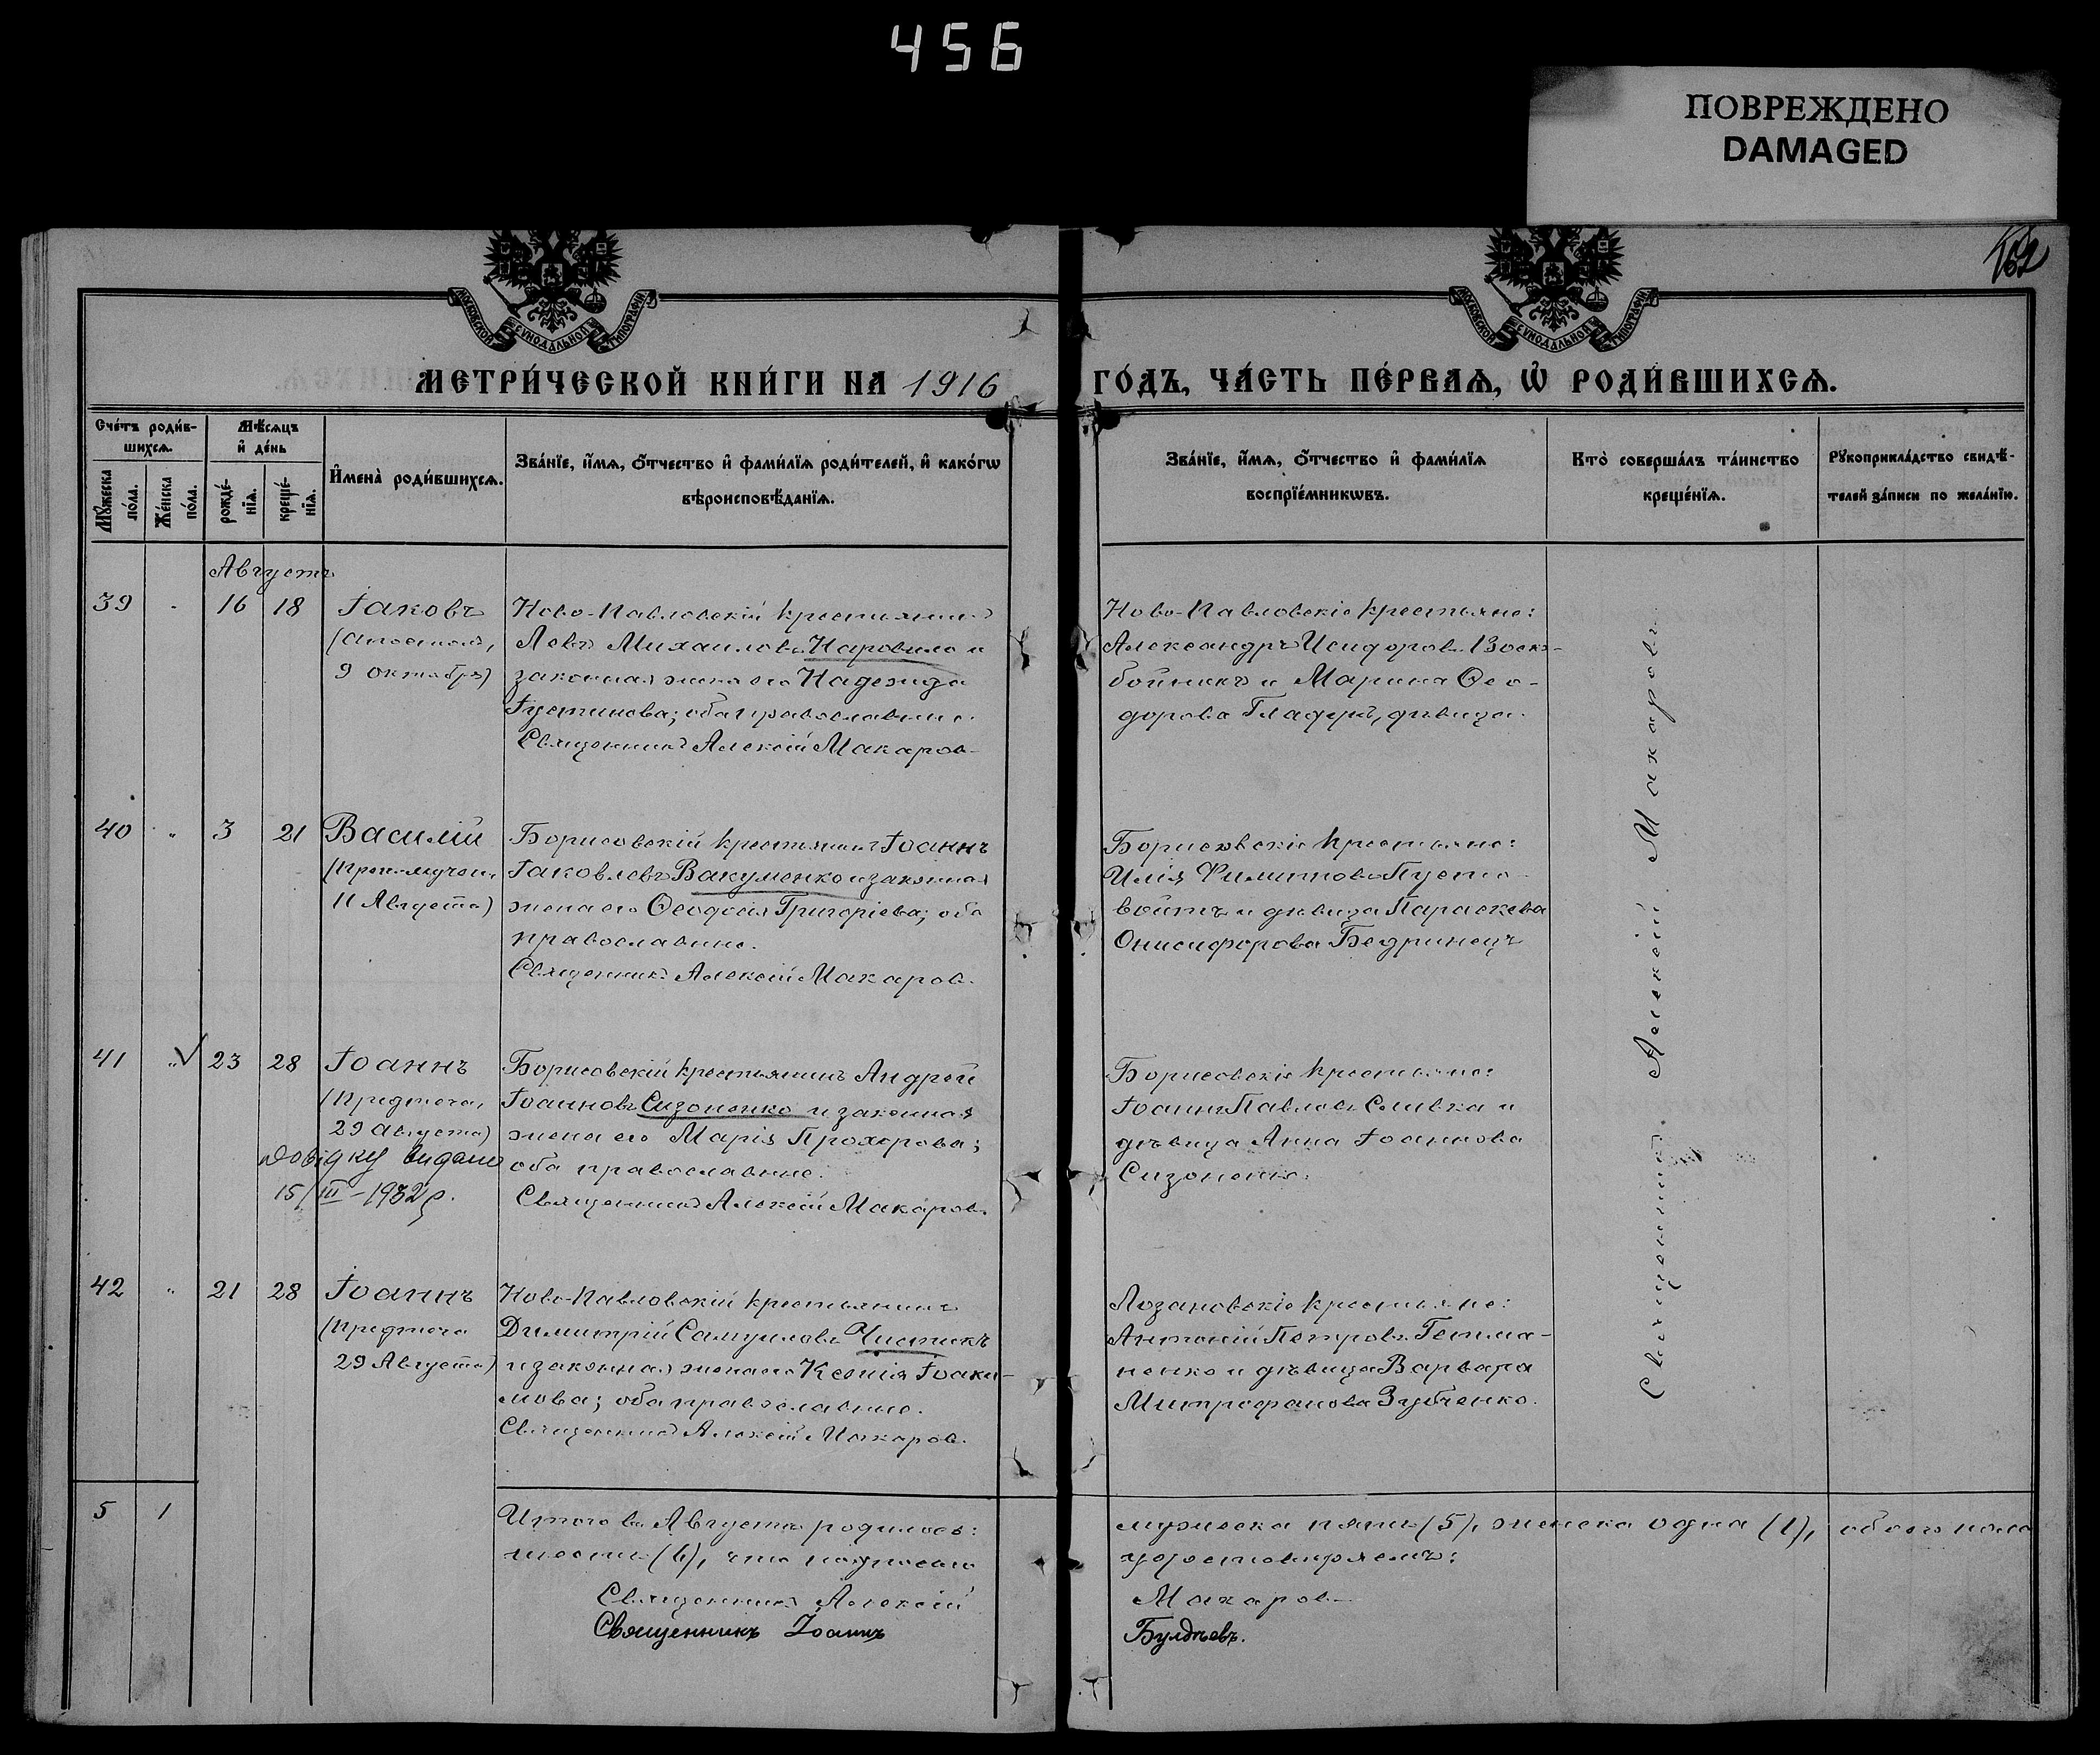 456
ПОВРЕЖДЕНО
DAMAGED
162
МОСКОВСКОЙ СѴНОДАЛЬНОЙ ТИПОГРАФІИ
МОСКОВСКОЙ СѴНОДАЛЬНОЙ ТИПОГРАФІИ
МЕТРИ́ЧЕСКОЙ КНИ́ГИ НА 1916
ГО́ДЪ, ЧА́СТЬ ПЕ́РВАѦ, Ѡ҆ РОДИ́ВШИХСѦ.
Сче́тъ роди́в-
шихсѧ.
Мꙋ́жеска по́ла.
Же́нска по́ла.
Мѣ́сѧцъ
и҆ де́нь
рожде́-
нїѧ.
креще́-
нїѧ.
И҆мена̀ роди́вшихсѧ.
Зва́нїе, и҆́мѧ, ѻ҆́тчество и҆ фами́лїѧ роди́телей, и҆ како́гѡ
вѣроисповѣ́данїѧ.
Зва́нїе, и҆́мѧ, ѻ҆́тчество и҆ фами́лїѧ
воспрїе́мникѡвъ.
Кто̀ соверша́лъ та́инство
креще́нїѧ.
Рꙋкоприкла́дство свидѣ́-
телей за́писи по жела́нїю.
Августъ
39 16 18 Іаковъ
(апостола,
9 октября)
Ново-Павловскій крестьянинъ
Левъ Михаиловъ Наровило и
законная жена его Надежда
Іустинова; оба православные.
Священникъ Алексій Макаровъ
Ново-Павловскіе крестьяне:
Александръ Исидоровъ Воско-
бойникъ и Марина Ѳео-
дорова Гладуръ, дѣвица.
40 " 3 21 Василій
11 Августа)
Борисовскій крестьянинъ Іоаннъ
Іаковлевъ Вакуменко и законная
жена его Ѳеодосія Григоріева; оба
православные.
Священникъ Алексій Макаровъ.
Борисовскіе крестьяне:
Илія Филипповъ Пусто-
войтъ и дѣвица Параскева
Онисифорова Бедринецъ
41 " √ 23 28 Іоаннъ
(Предтеча,
29 августа)
Довідку видано
15/III-1932 р.
Борисовскій крестьянинъ Андрей
Іоанновъ Сизоненко и законная
жена его Марія Прохорова;
оба православные.
Священникъ Алексій Макаровъ.
Борисовскіе крестьяне:
Іоаннъ Павловъ Сливка и
дѣвица Анна Іоаннова
Сизоненко.
42 " 21 28 Іоаннъ
(Предтеча
29 Августа)
Ново-Павловскій крестьянинъ
Димитрій Самуиловъ Чистикъ
и законная жена его Ксенія Іоаки-
мова; оба православные.
Священникъ Алексій Макаровъ.
Лозановскіе крестьяне:
Антоній Петровъ Гетма-
ненко и дѣвица Варвара
Митрофанова Зубченко.
Священникъ Алексій Макаровъ
5 1
Итого въ Августѣ родилось:
мужеска пять (5), женска одна (1), обоего пола
шесть (6), что подписью
удостовѣряемъ:
Священникъ Алексій
Макаровъ
Священникъ Іоаннъ
Булдѣевъ.